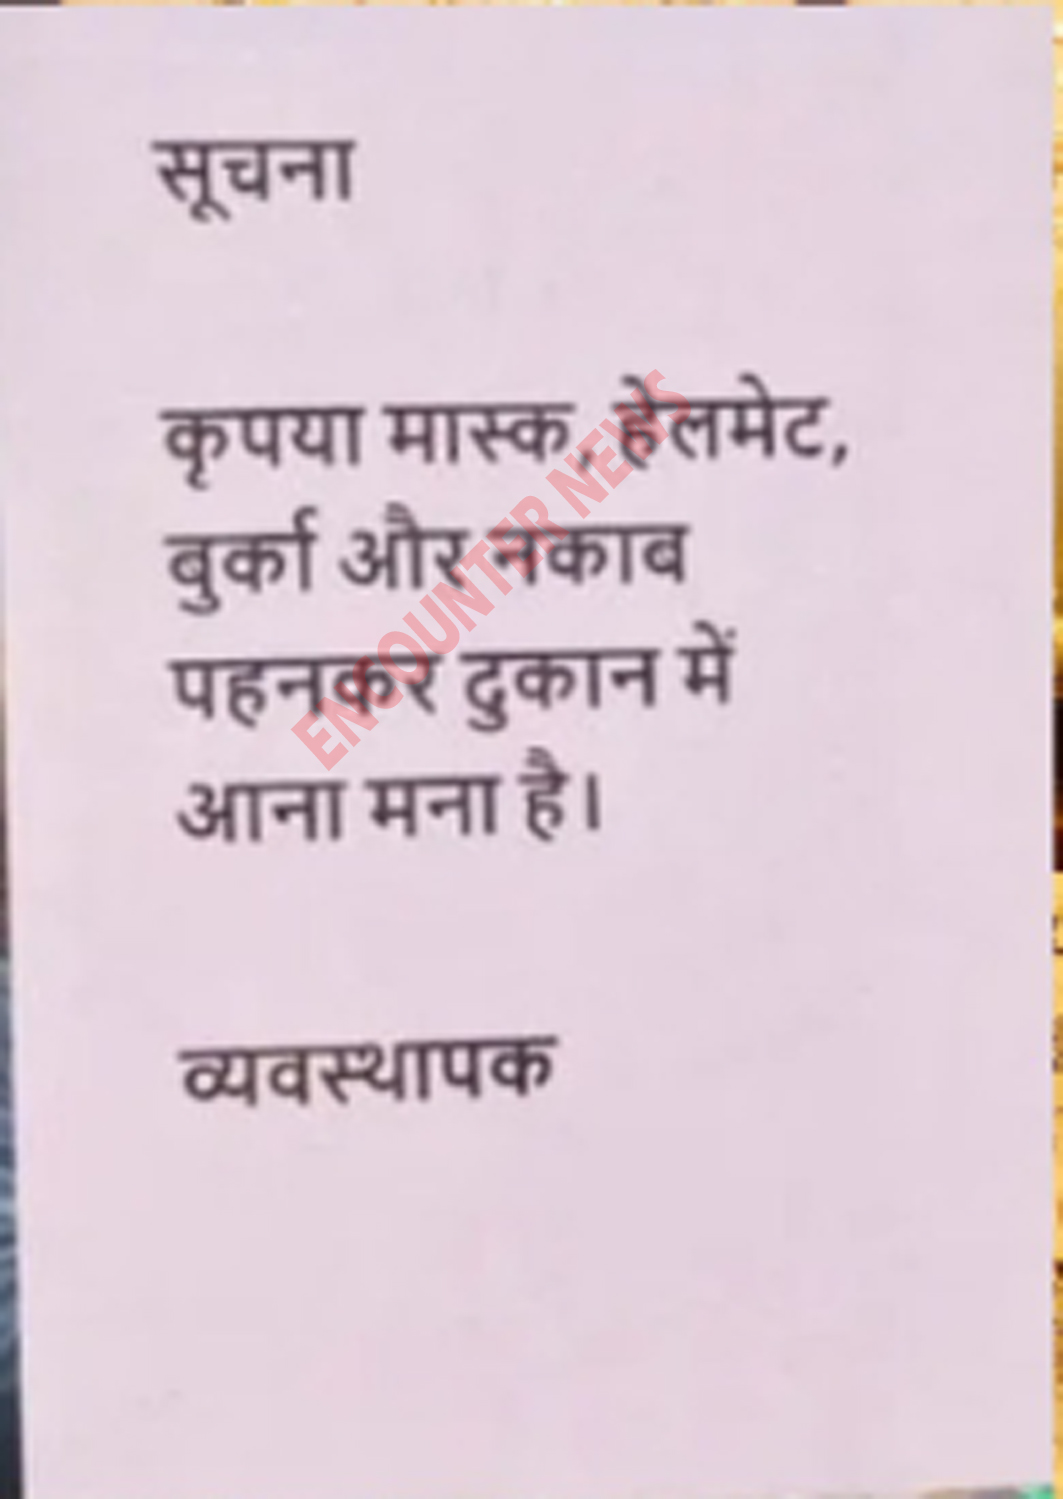 सूचना
कृपया मास्क, हेलमेट,
बुर्का और नकाब
पहनकर दुकान में
आना मना है।
व्यवस्थापक
ENCOUNTER NEWS